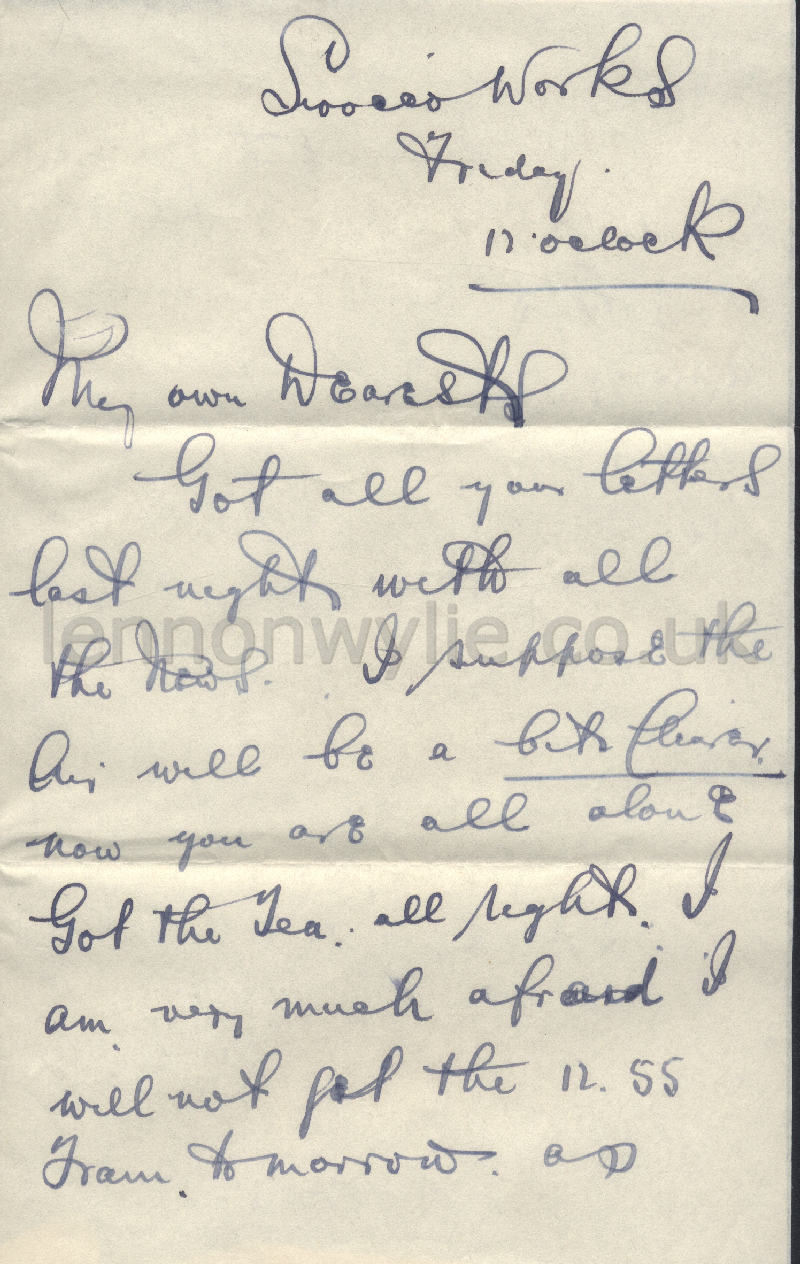 Sirocco Works
Friday.
12 oclock
My own Dearest
Got all your letters
last night with all
the News. I suppose the
lennonwylie.co.uk
Air will be a bit Clearer.
now you are all alone
Got the Tea. all right. I
am very much afraid I
will not get the 12.55
Tram. tomorrow. as